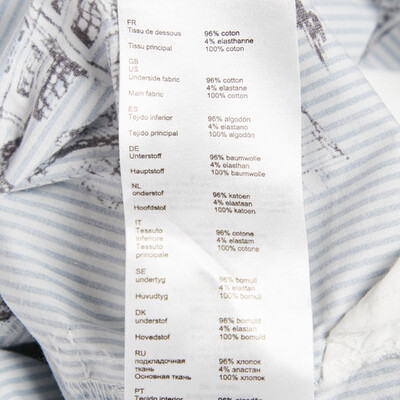 FR
Tissu de dessous 96% coton
4% elasthanne
Tissu principal 100% coton
GB
US
Underside fabric 96% cotton
4% elastane
Main fabric 100% cotton
ES
Tejido inferior 96% algodón
4% elastano
Tejido principal 100% algodón
DE
Unterstoff 96% baumwolle
4% elasthan
Hauptstoff 100% baumwolle
NL
onderstof 96% katoen
4% elastaan
Hoofdstof 100% katoen
IT
Tessuto 96% cotone
inferiore 4% elastam
Tessuto 100% cotone
principale
SE
undertyg 96% bomull
4% elastan
Huvudtyg 100% bomull
DK
understof 96% bomuld
4% elastan
Hovedstof 100% bomuld
RU
подкладочная 96% хлопок
ткань 4% эластан
Основная ткань 100% хлопок
PT
Tejido interior 96% algodão